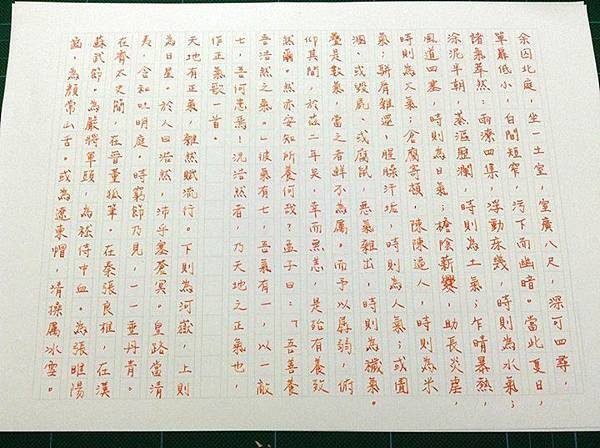 余囚北庭，坐一土室，室廣八尺，深可四尋，
單扉低小，白間短窄，污下而幽暗。當此夏日，
諸氣萃然：雨潦四集，浮動床幾，時則為水氣；
涂泥半朝，蒸漚歷瀾，時則為土氣；乍晴暴熱，
風道四塞，時則為日氣；檐陰薪爨，助長炎虐，
時則為火氣；倉腐寄頓，陳陳逼人，時則為米
氣；駢肩雜遝，腥臊汗垢，時則為人氣；或圊
溷、或毀屍、或腐鼠，惡氣雜出，時則為穢氣。
疊是數氣，當之者鮮不為厲。而予以孱弱，俯
仰其間，於茲二年矣，幸而無恙，是殆有養致
然爾。然亦安知所養何哉？孟子曰：「吾善養
吾浩然之氣。」彼氣有七，吾氣有一，以一敵
七，吾何患焉！況浩然者，乃天地之正氣也，
作正氣歌一首。
天地有正氣，雜然賦流行。下則為河嶽，上則
為日星。於人曰浩然，沛乎塞蒼冥。皇路當清
夷，含和吐明庭。時窮節乃見，一一垂丹青。
在齊太史簡，在晉董狐筆。在秦張良椎，在漢
蘇武節。為嚴將軍頭，為嵇侍中血。為張睢陽
齒，為顏常山舌。或為遼東帽，清操厲冰雪。